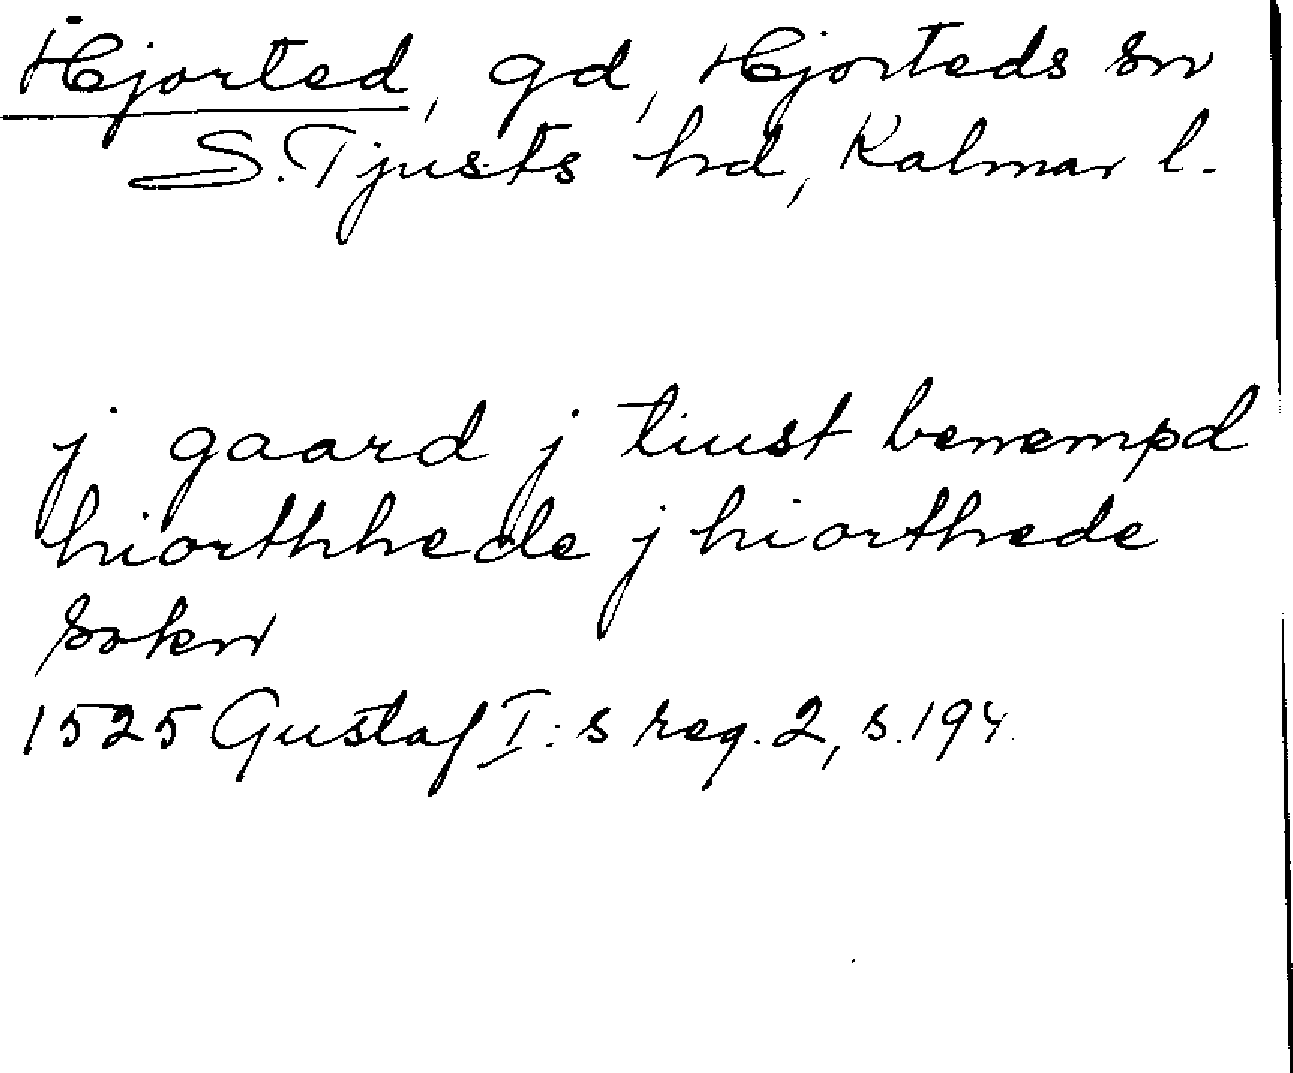 Hjorted, gd, Hjorteds sn
S. Tjusts hd, Kalmar l.
j gaard j tiust benempd
hiorthhede j hiorthede
sokn
1525 Gustaf I:s reg. 2, s. 194.